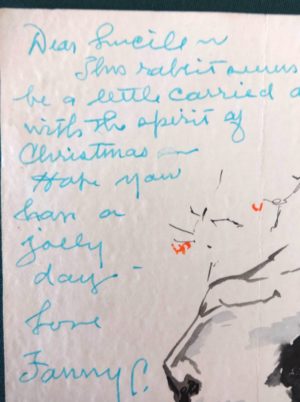 Dear Lucile ~
This rabbit seems
be a little carried a
with the spirit of
Christmas —
Hope you
have a
jolly
day -
Love
Fanny C.